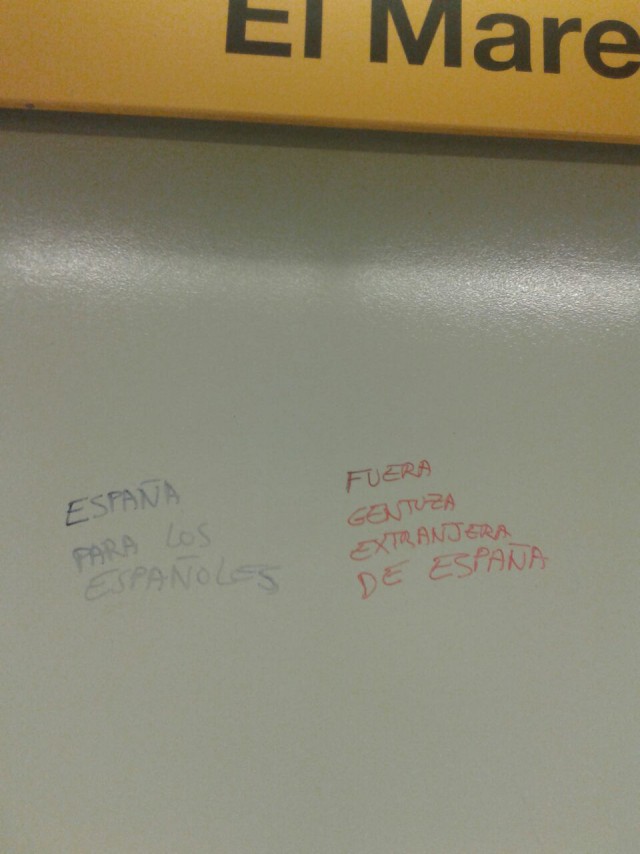 El Mare
ESPAÑA
PARA LOS
ESPAÑOLES
FUERA
GENTUZA
EXTRANJERA
DE ESPAÑA